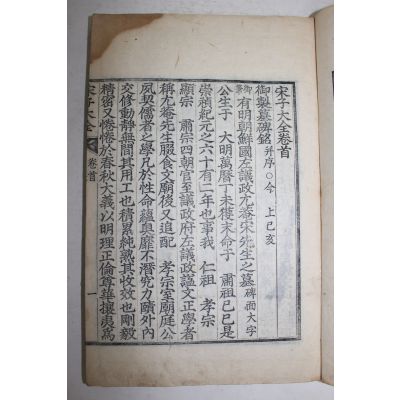 宋子大全卷首
御製墓碑銘 并序○今 上己亥
御筆 有明朝鮮國左議政尤菴宋先生之墓 碑面大字
公生于 大明萬曆丁未獲末命于 肅祖己巳是
崇禎紀元之六十有二年也事我 仁祖 孝宗
顯宗 肅宗四朝官至議政府左議政謚文正學者
稱尤菴先生腏食文廟後又追配 孝宗室廟庭公
夙契儒者之學凡於性命蘊奧靡不潛究力賾外內
交修動靜無間其用工也積累純熟其收效也剛毅
精密又惓惓於春秋大義以明理正倫尊華攘夷爲
宋子大全 卷首 一